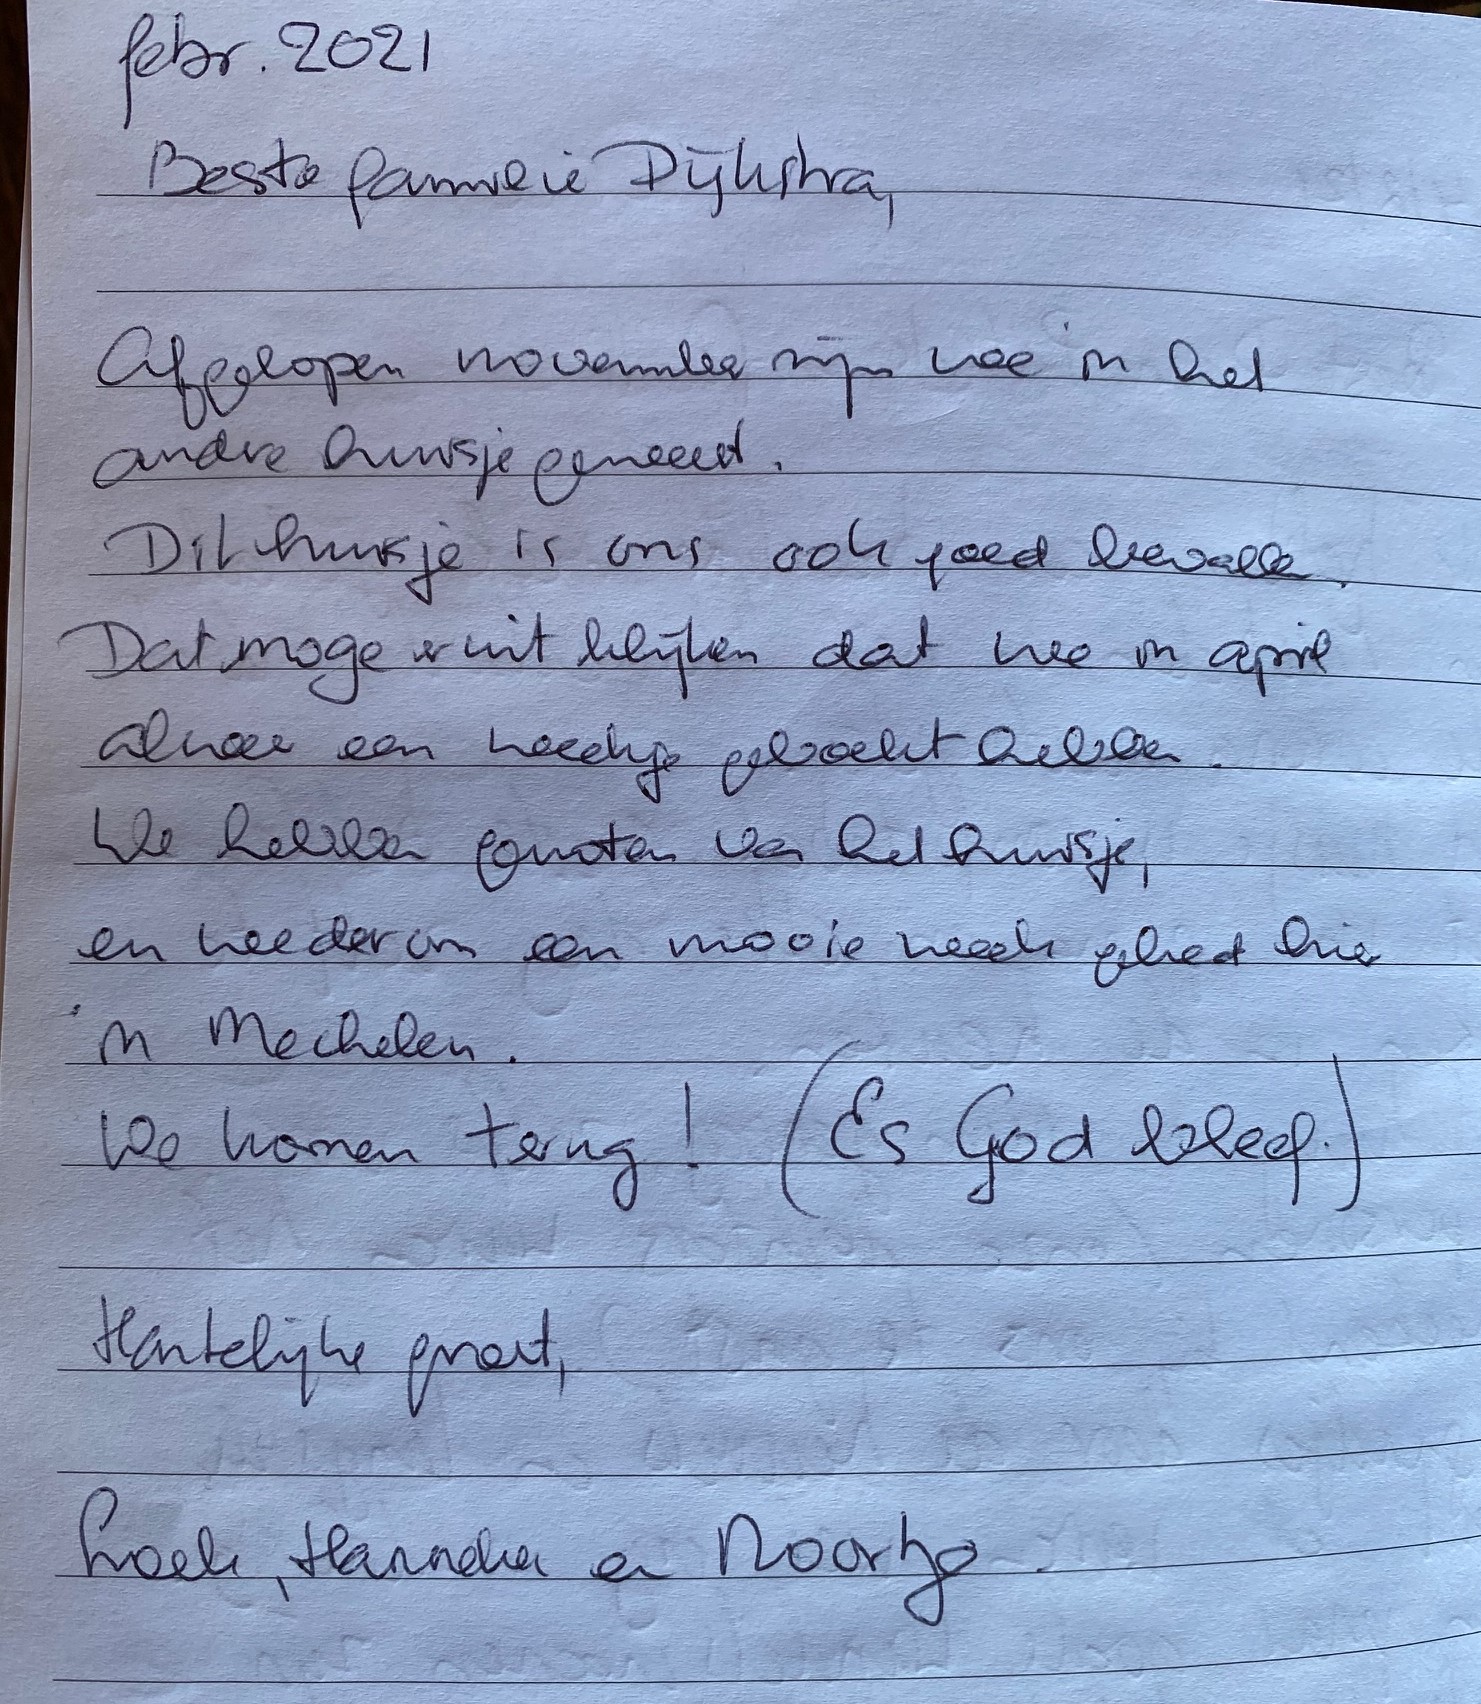 febr. 2021
Beste familie Dijkstra,
Afgelopen november zijn we in het
andre huisje geweest.
Dit huisje is ons ook goed bevallen.
Dat moge eruit blijken dat we in april
alweer een weekje geboekt hebben.
We hebben genoten van het huisje,
en wederom een mooie week gehad hier
in Mechelen.
We komen terug! (Es God bleef.)
Hartelijke groet,
Loek, Hanneke en Noortje.